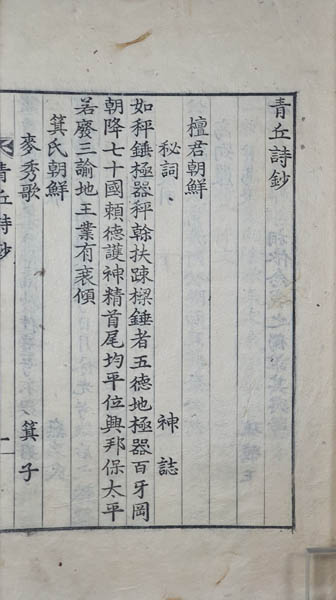 青丘詩鈔
檀君朝鮮
秘詞 神誌
如秤錘極器秤榦扶踈樑錘者五德地極器百牙岡
朝降七十國賴德護神精首尾均平位興邦保太平
若廢三諭地王業有衰傾
箕氏朝鮮
麥秀歌 箕子
青丘詩鈔 一